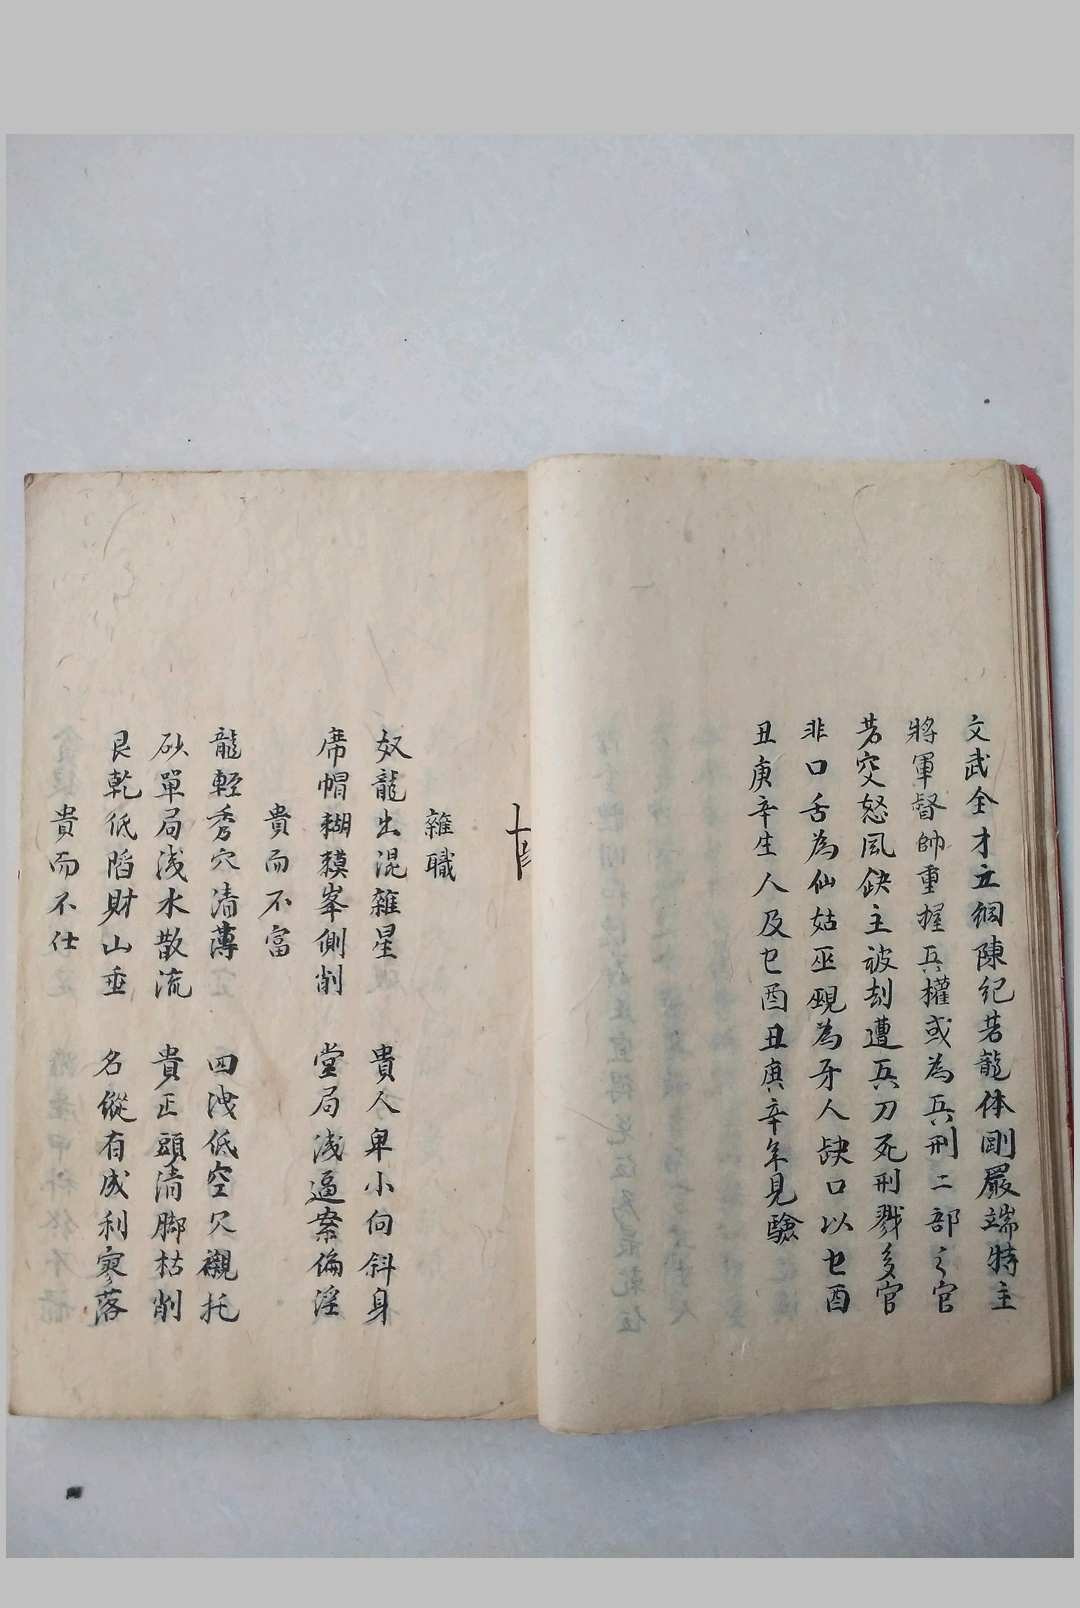 文武全才立綱陳紀若龍体剛嚴端特主
將軍督帥重握兵權或為兵刑二部之官
若突怒風缺主被刼遭兵刀死刑戮多官
非口舌為仙姑巫覡為牙人缺口以乜酉
丑庚辛生人及乜酉丑庚辛年見驗
雜職
奴龍出混雜星 貴人卑小向斜身
席帽糊糢峯側削 堂局浅逼案偏淫
貴而不富
龍輕秀穴清薄 四洩低空欠襯托
砂單局浅水散流 貴正頭清脚枯削
艮乾低陷財山垂 名縱有成利寥落
貴而不仕